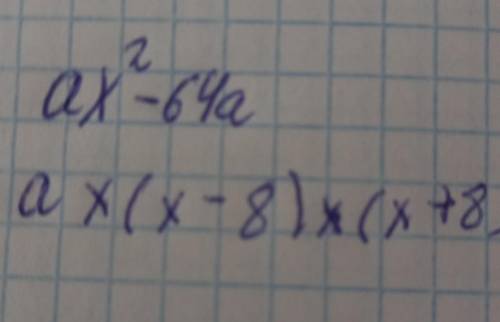 ax²-64a
a x (x-8) x (x+8)